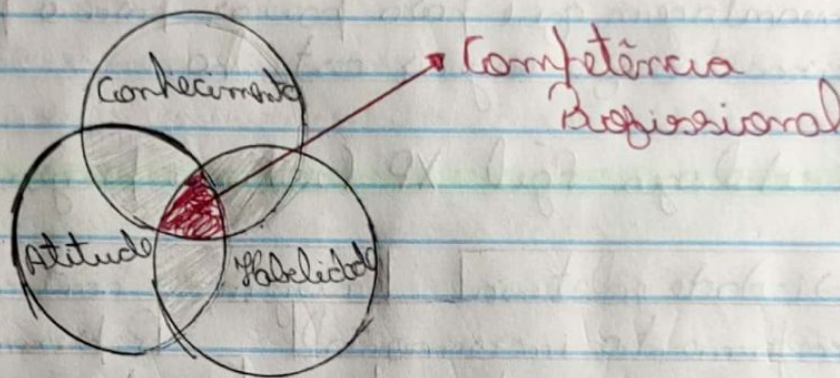 Conhecimento
Competência
Profissional
Atitude
Habelidade